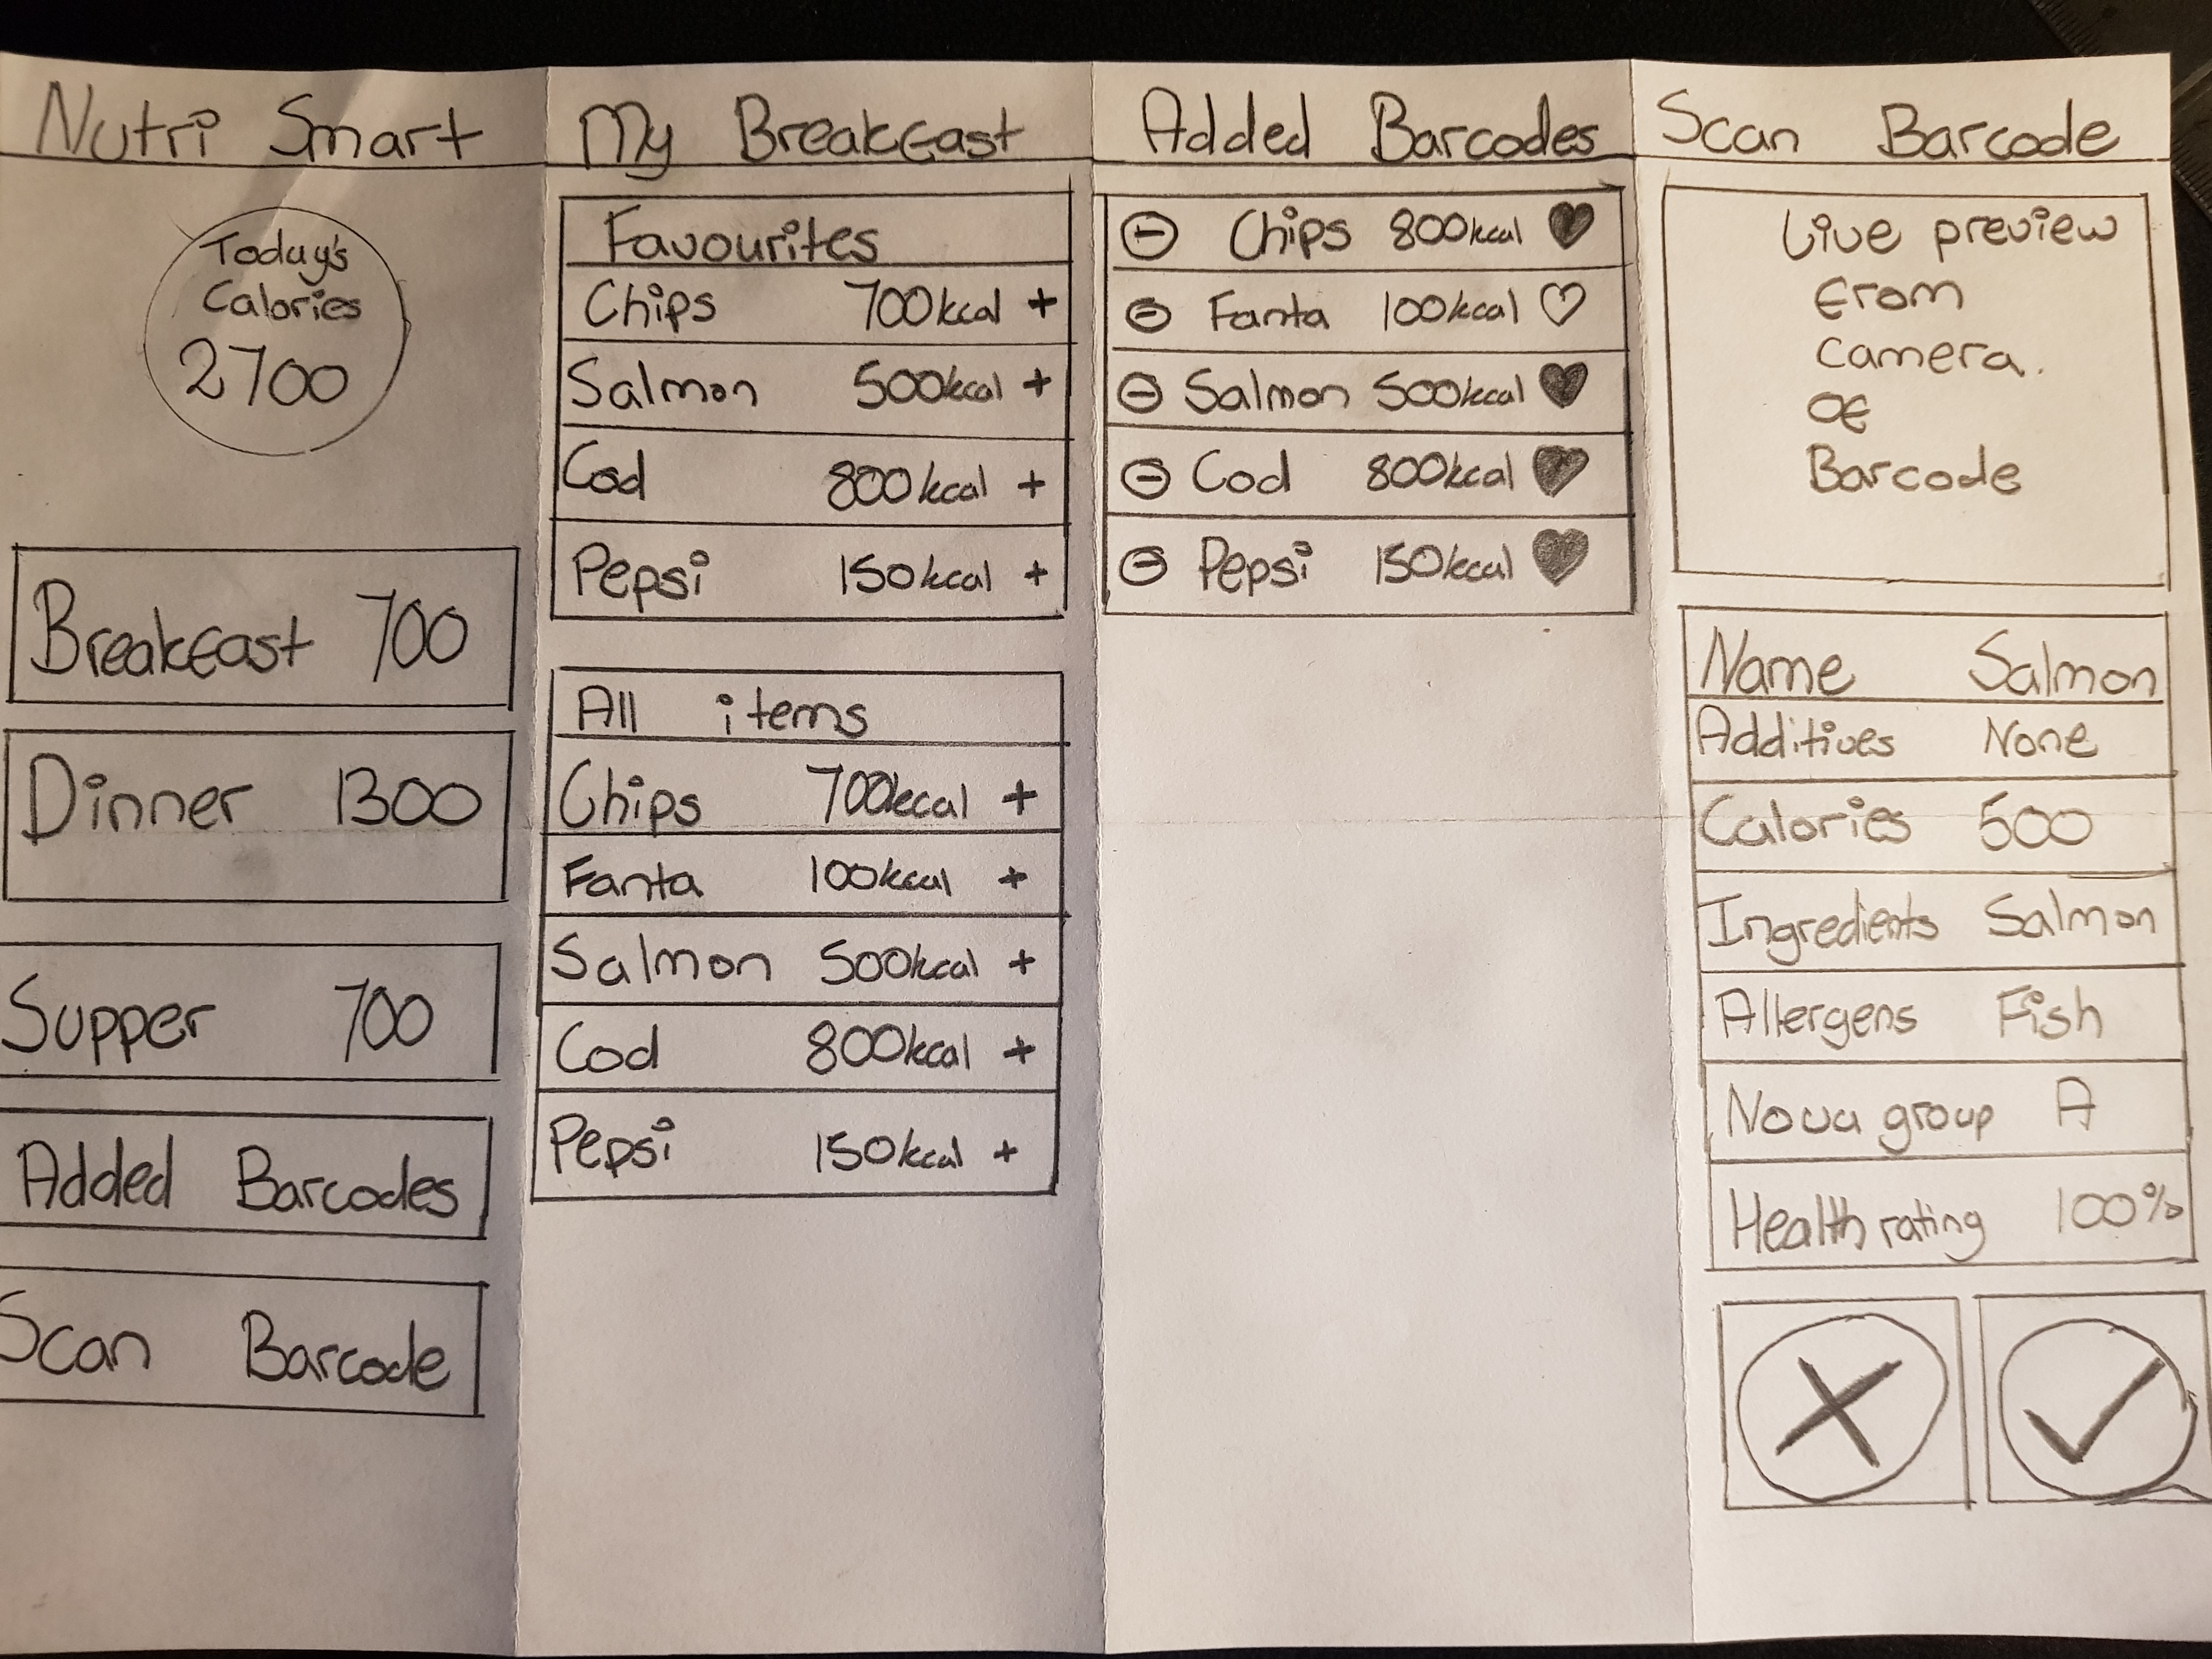 Nutri Smart
Today's
Calories
2700
Breakfast 700
Dinner 1300
Supper 700
Added Barcodes
Scan Barcode
My Breakfast
Favourites
Chips 700kcal +
Salmon 500kcal +
Cod 800kcal +
Pepsi 150kcal +
All items
Chips 700kcal +
Fanta 100kcal +
Salmon 500kcal +
Cod 800kcal +
Pepsi 150kcal +
Added Barcodes
Chips 800kcal
Fanta 100kcal
Salmon 500kcal
Cod 800kcal
Pepsi 150kcal
Scan Barcode
Live preview
from
camera.
of
Barcode
Name Salmon
Additives None
Calories 500
Ingredients Salmon
Allergens Fish
Nova group A
Health rating 100%